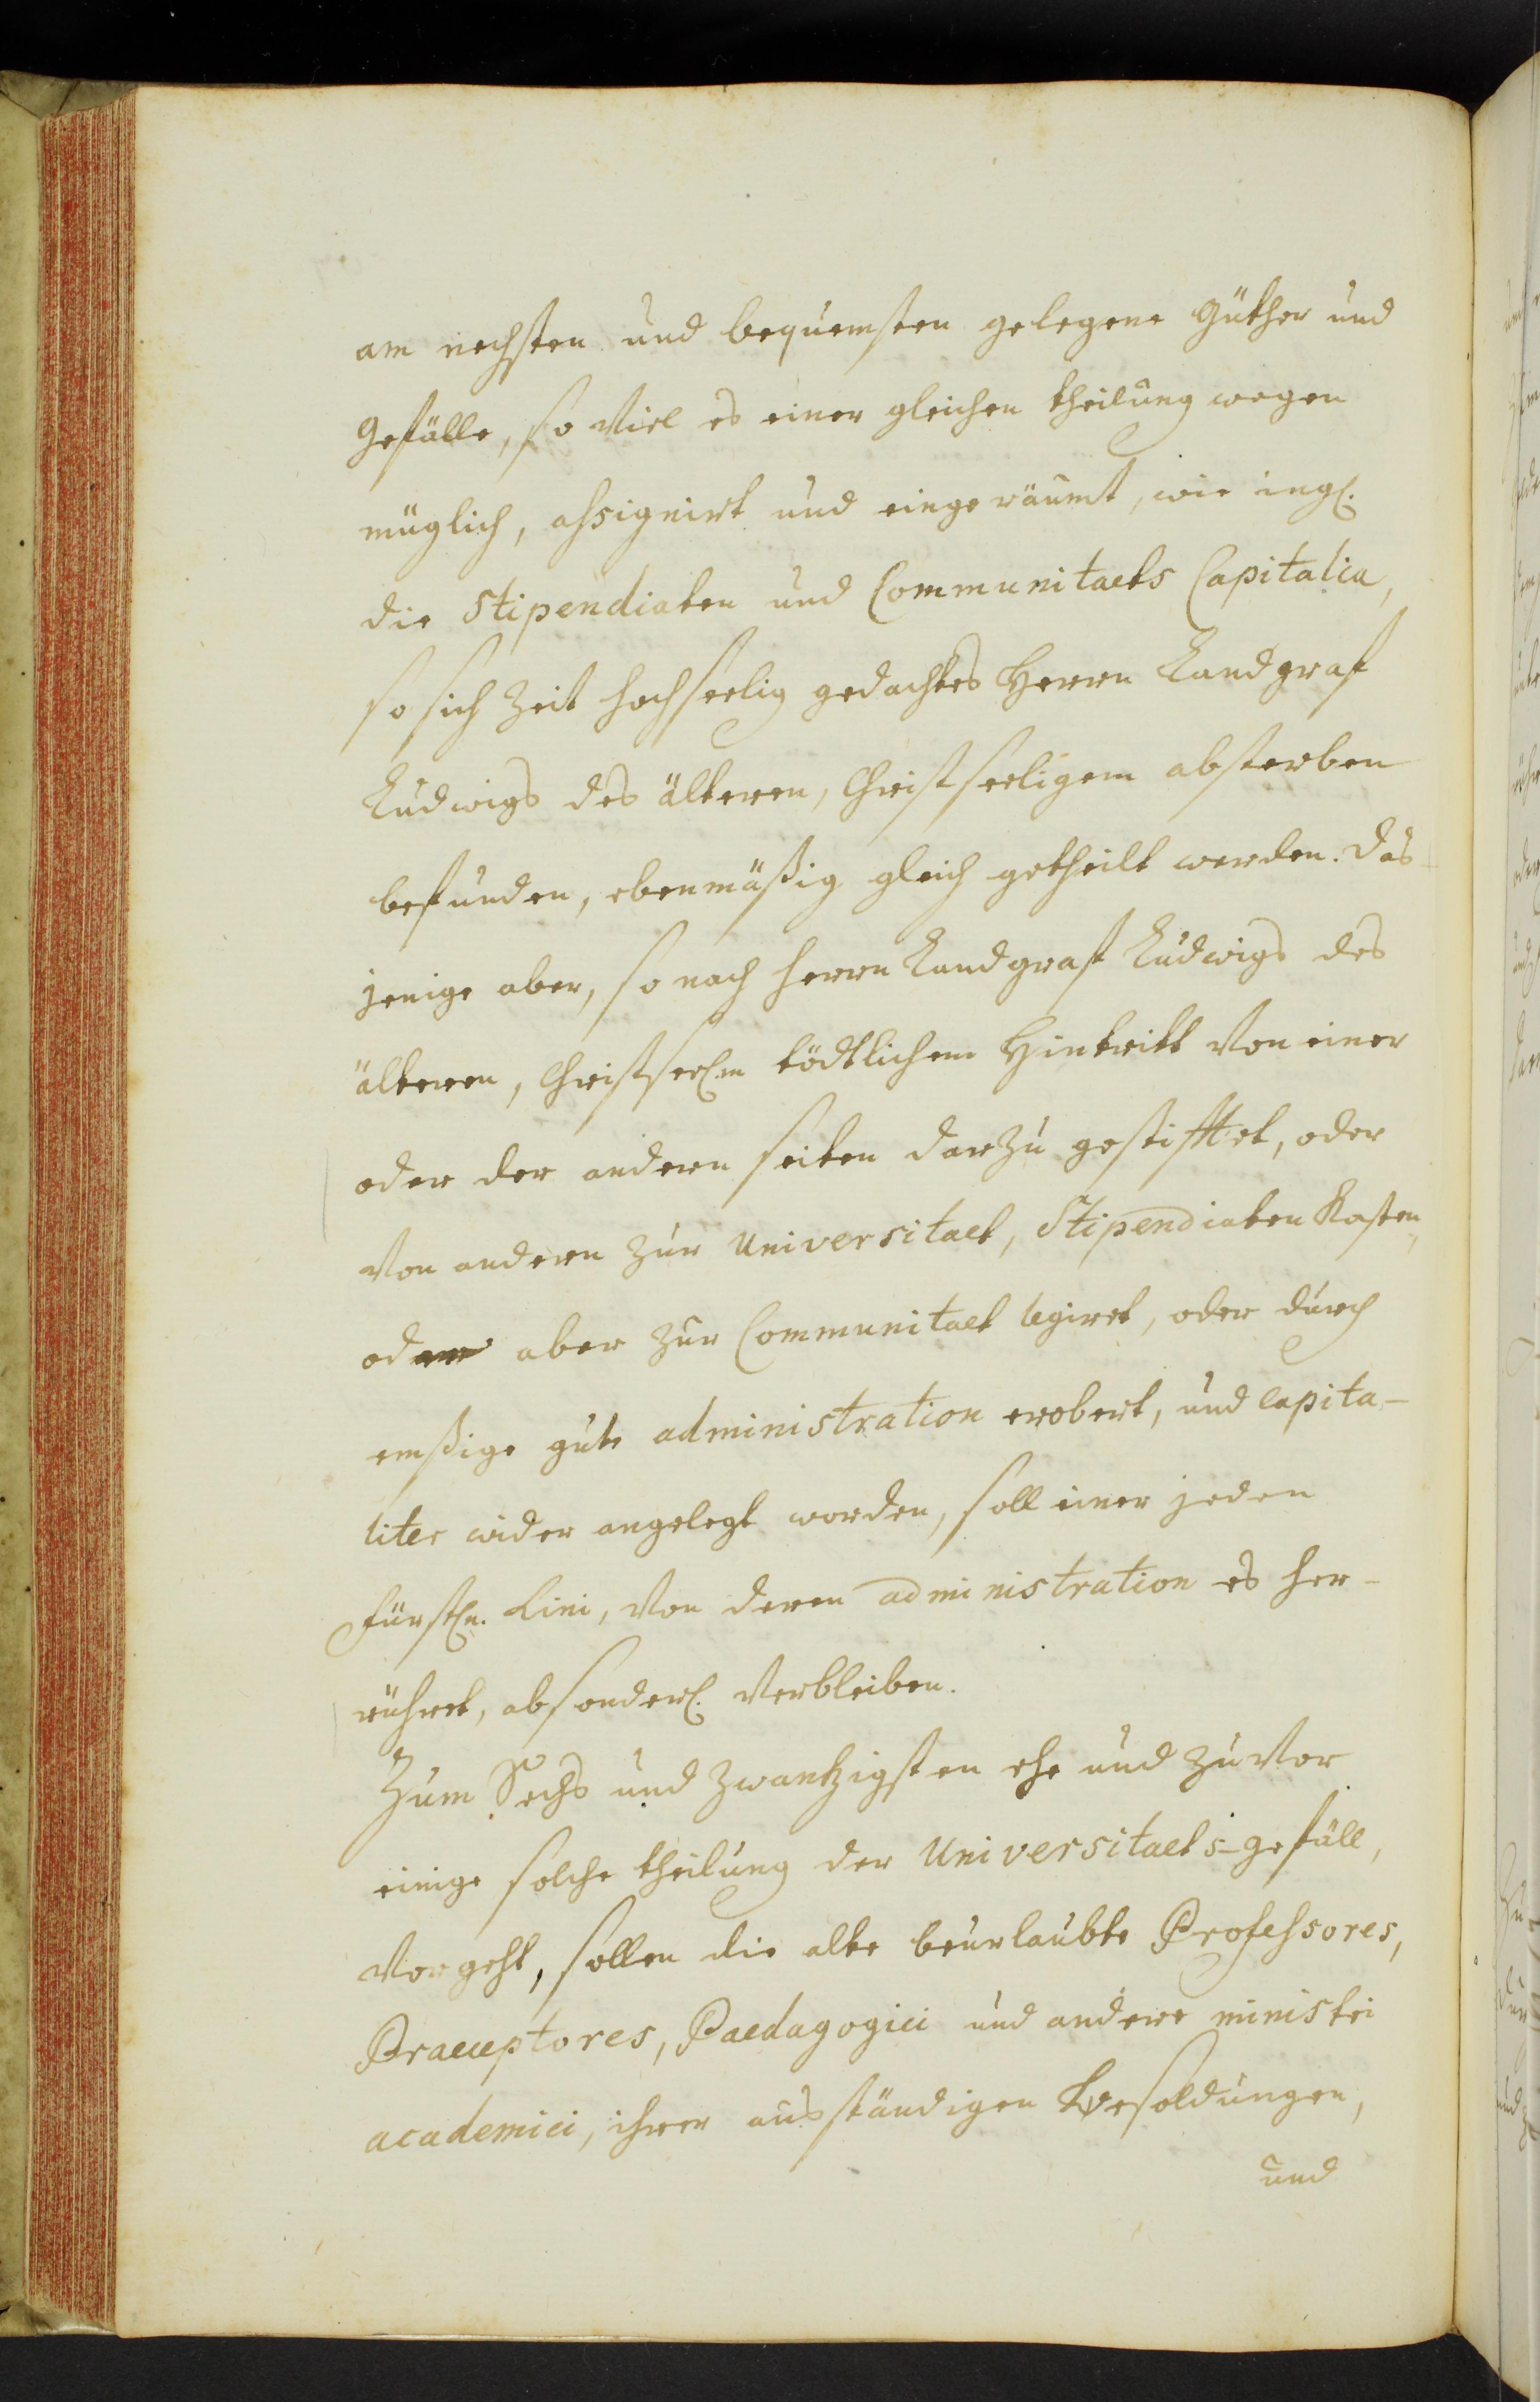 am nechsten und bequemsten gelegene Güther und
Gefälle, so viel es einer gleichen theilung wegen
müglich, assignirt und eingeräumt, wie ingl.
die Stipendiaten und Communitaets Capitalia,
so sich Zeit hochseelig gedachtes Herrn Landgraf
Ludwigs des älteren, Christseeligem absterben
befunden, ebenmäßig gleich getheilt werden. Das-
jenige aber, so nach Herrn Landgraf Ludwigs des
älteren, Christseelm tödtlichem Hintritt von einer
oder der andern seiten darzu gestifftet, oder
von andern zur Universitaet, Stipendiaten Kasten,
oder aber zur Communitaet legiret, oder durch
emßige gute administration erobert, und capita-
liter wider angelegt worden, soll einer jeden
Fürstln. Lini, von deren administration es her-
rühret, absonderl. verbleiben.
Zum Sechs und zwantzigsten ehe und zuvor
einige solche theilung der Universitaets-gefäll,
vorgeht, sollen die alte beurlaubte Professores,
Praeceptores, Paedagogici und andere ministri
academici, ihrer ausständigen besoldungen,
und